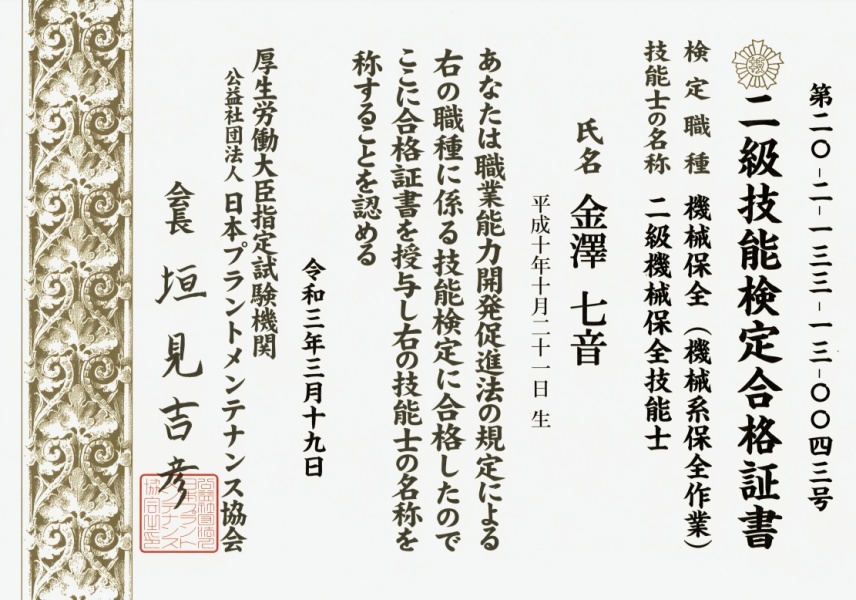 第二〇-二-一三三-一三-〇〇四三号
二級技能検定合格証書
検定職種 機械保全（機械系保全作業）
技能士の名称 二級機械保全技能士
氏名 金澤 七音
平成十年十月二十一日 生
あなたは職業能力開発促進法の規定による
右の職種に係る技能検定に合格したので
ここに合格証書を授与し右の技能士の名称を
称することを認める
令和三年三月十九日
厚生労働大臣指定試験機関
公益社団法人 日本プラントメンテナンス協会
会長 垣見吉彦